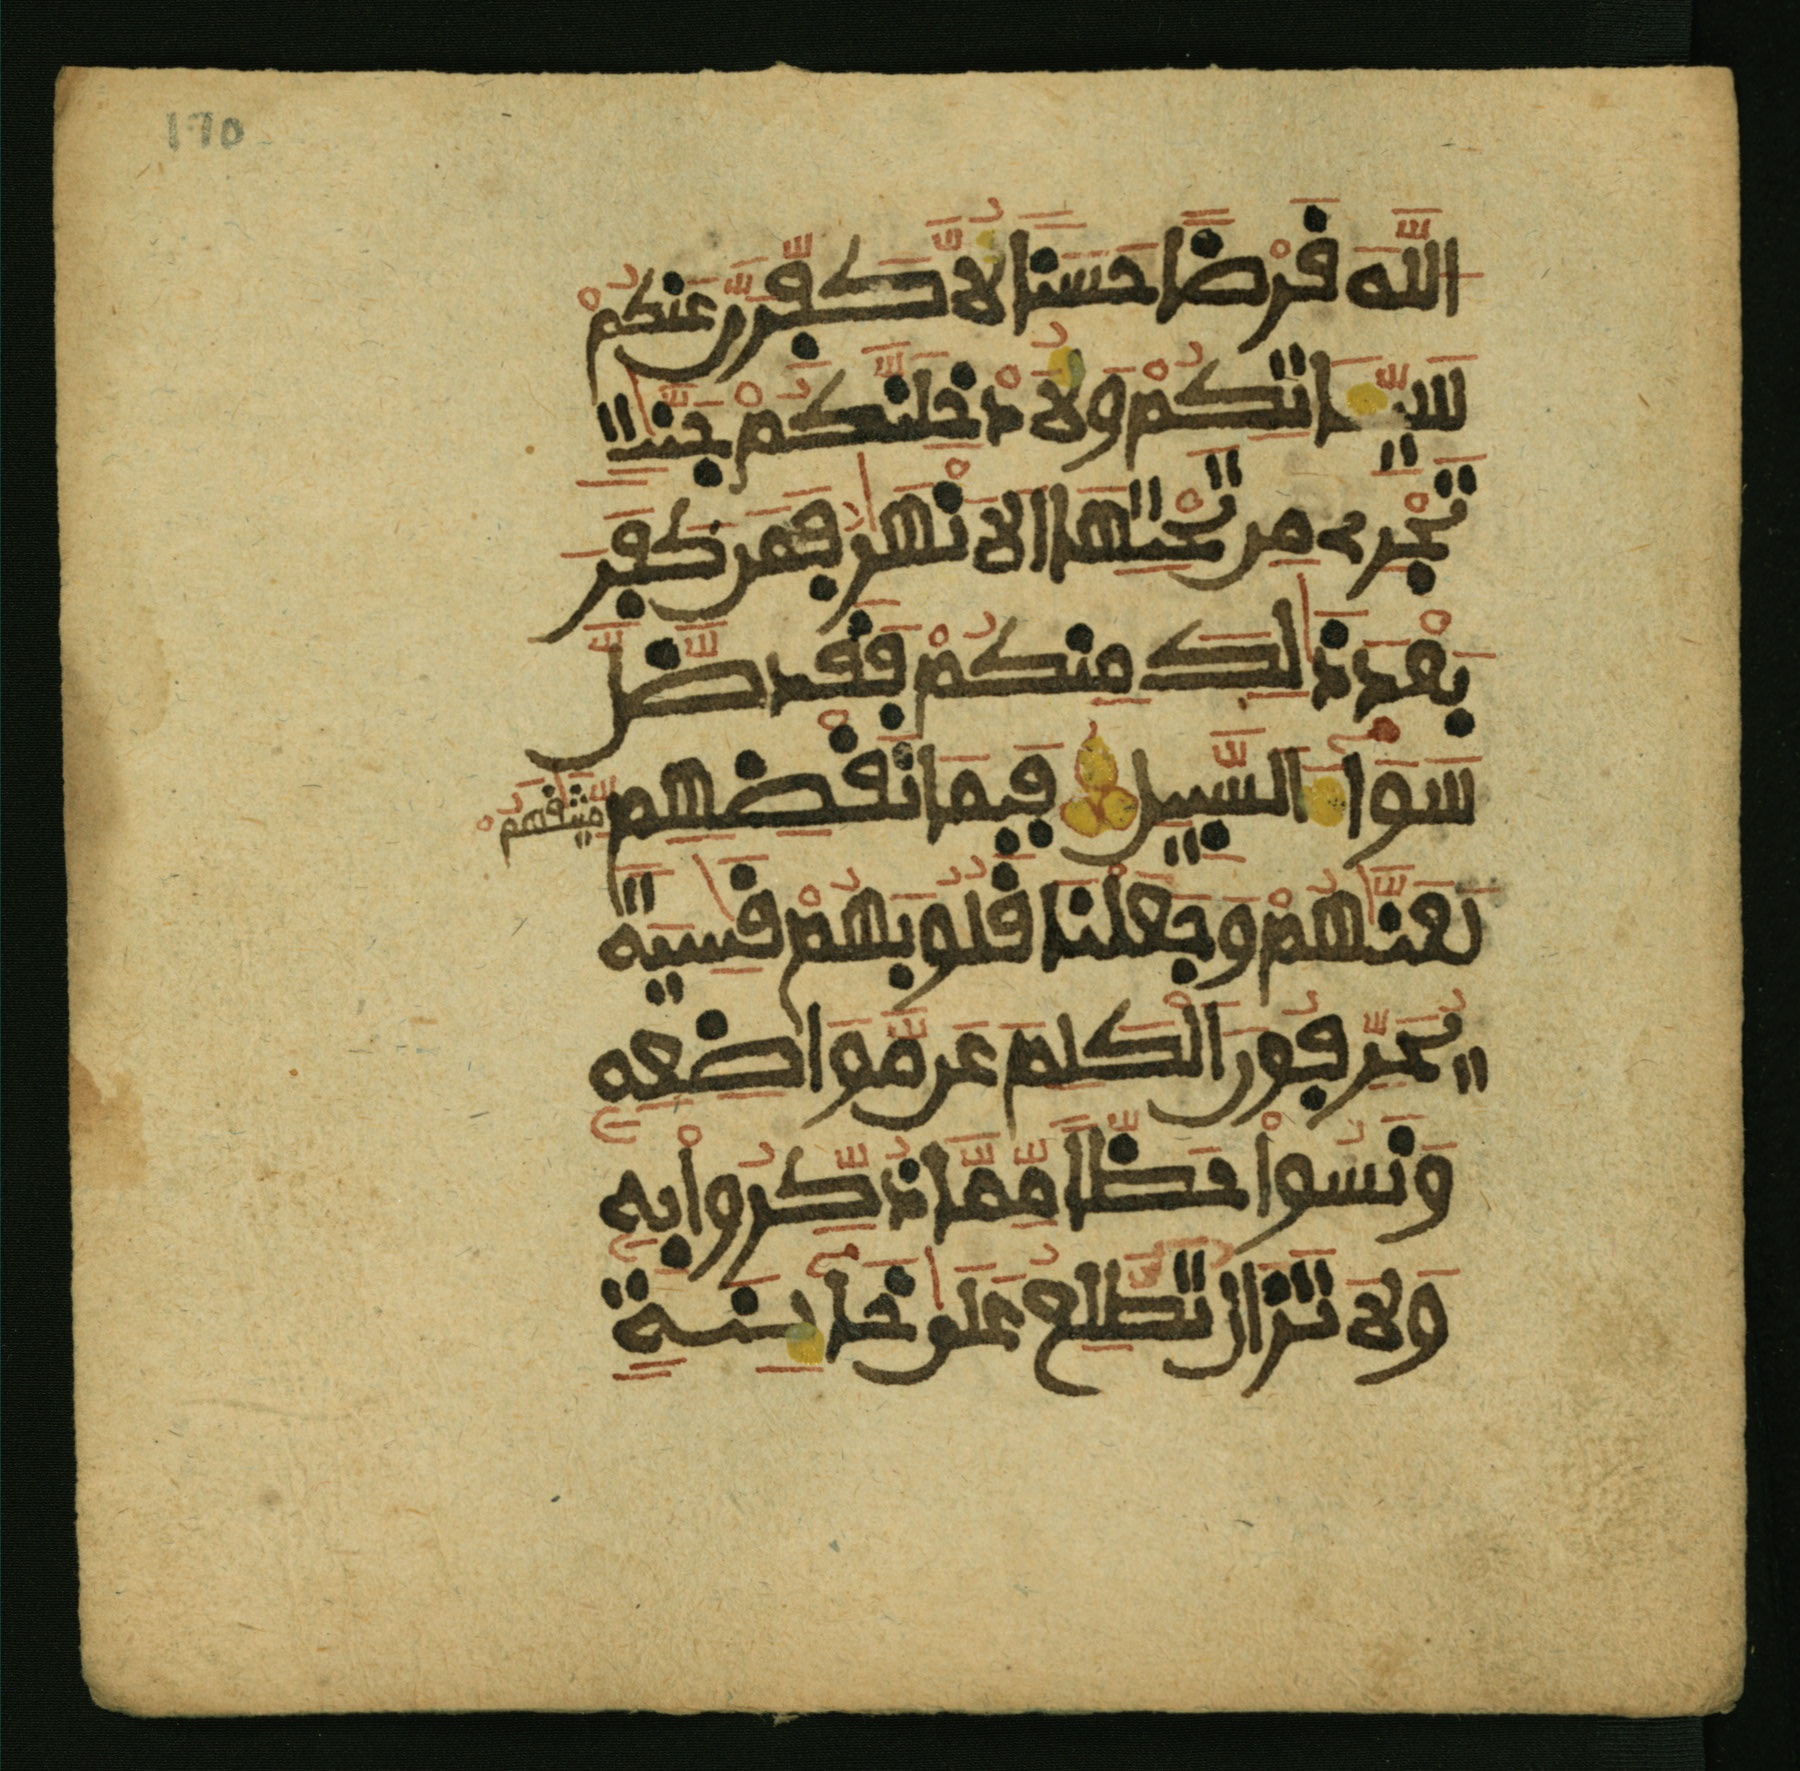 170
اللَّه قَرْضًا حَسَنًا لَأُكَفِّرَنَّ عَنكُمْ
سَيِّـَٔاتِكُمْ وَلَأُدْخِلَنَّكُمْ جَنَّٰتٍ
تَجْرِے مِن تَحْتِهَا الَانْهَٰرُ فَمَن كَفَرَ
بَعْدَ ذَٰلِكَ مِنكُمْ فَقَد ضَّلَّ
سَوَآءَ السَّبِيلِ فَبِمَا نَقْضِهِم مِّيثَٰقَهُمْ
لَعَنَّٰهُمْ وَجَعَلْنَا قُلُوبَهُمْ قَٰسِيَةً
يُحَرِّفُونَ الْكَلِمَ عَن مَّوَاضِعِهِ
وَنَسُواْ حَظًّا مِّمَّا ذُكِّرُواْ بِهِ
وَلَا تَزَالُ تَطَّلِعُ عَلَىٰ خَآئِنَةٍ